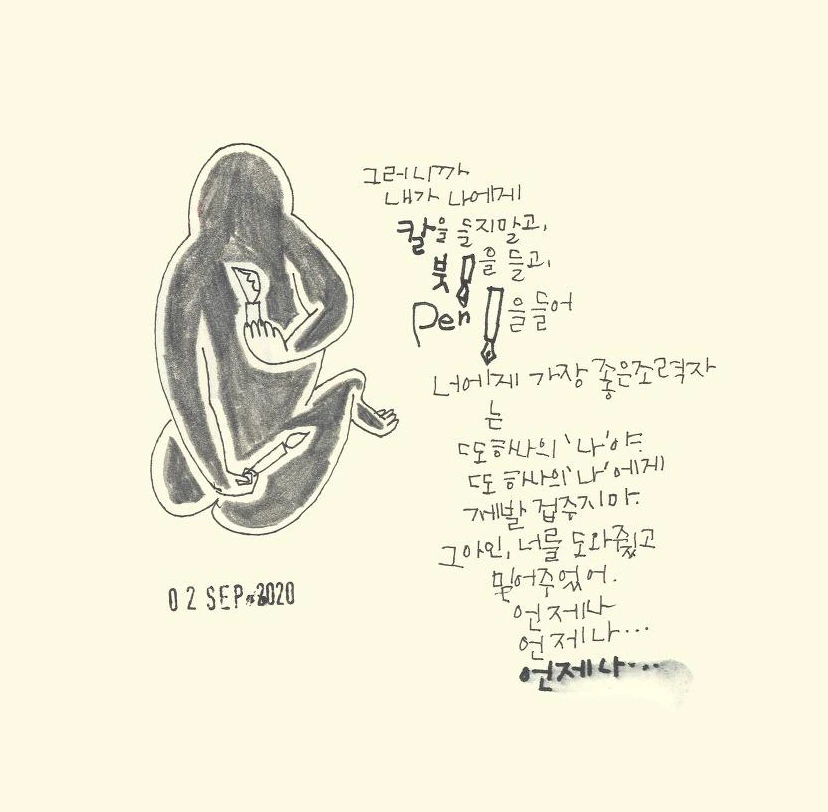 그러니까
내가 나에게
칼을 들지말고,
붓을 들고,
Pen을 들어
너에게 가장 좋은조력자
는
또하나의 '나'야.
또 하나의 '나'에게
제발 겁주지마.
그아인, 너를 도와줬고
믿어주었어.
언제나
언제나...
언제나...
02 SEP 2020